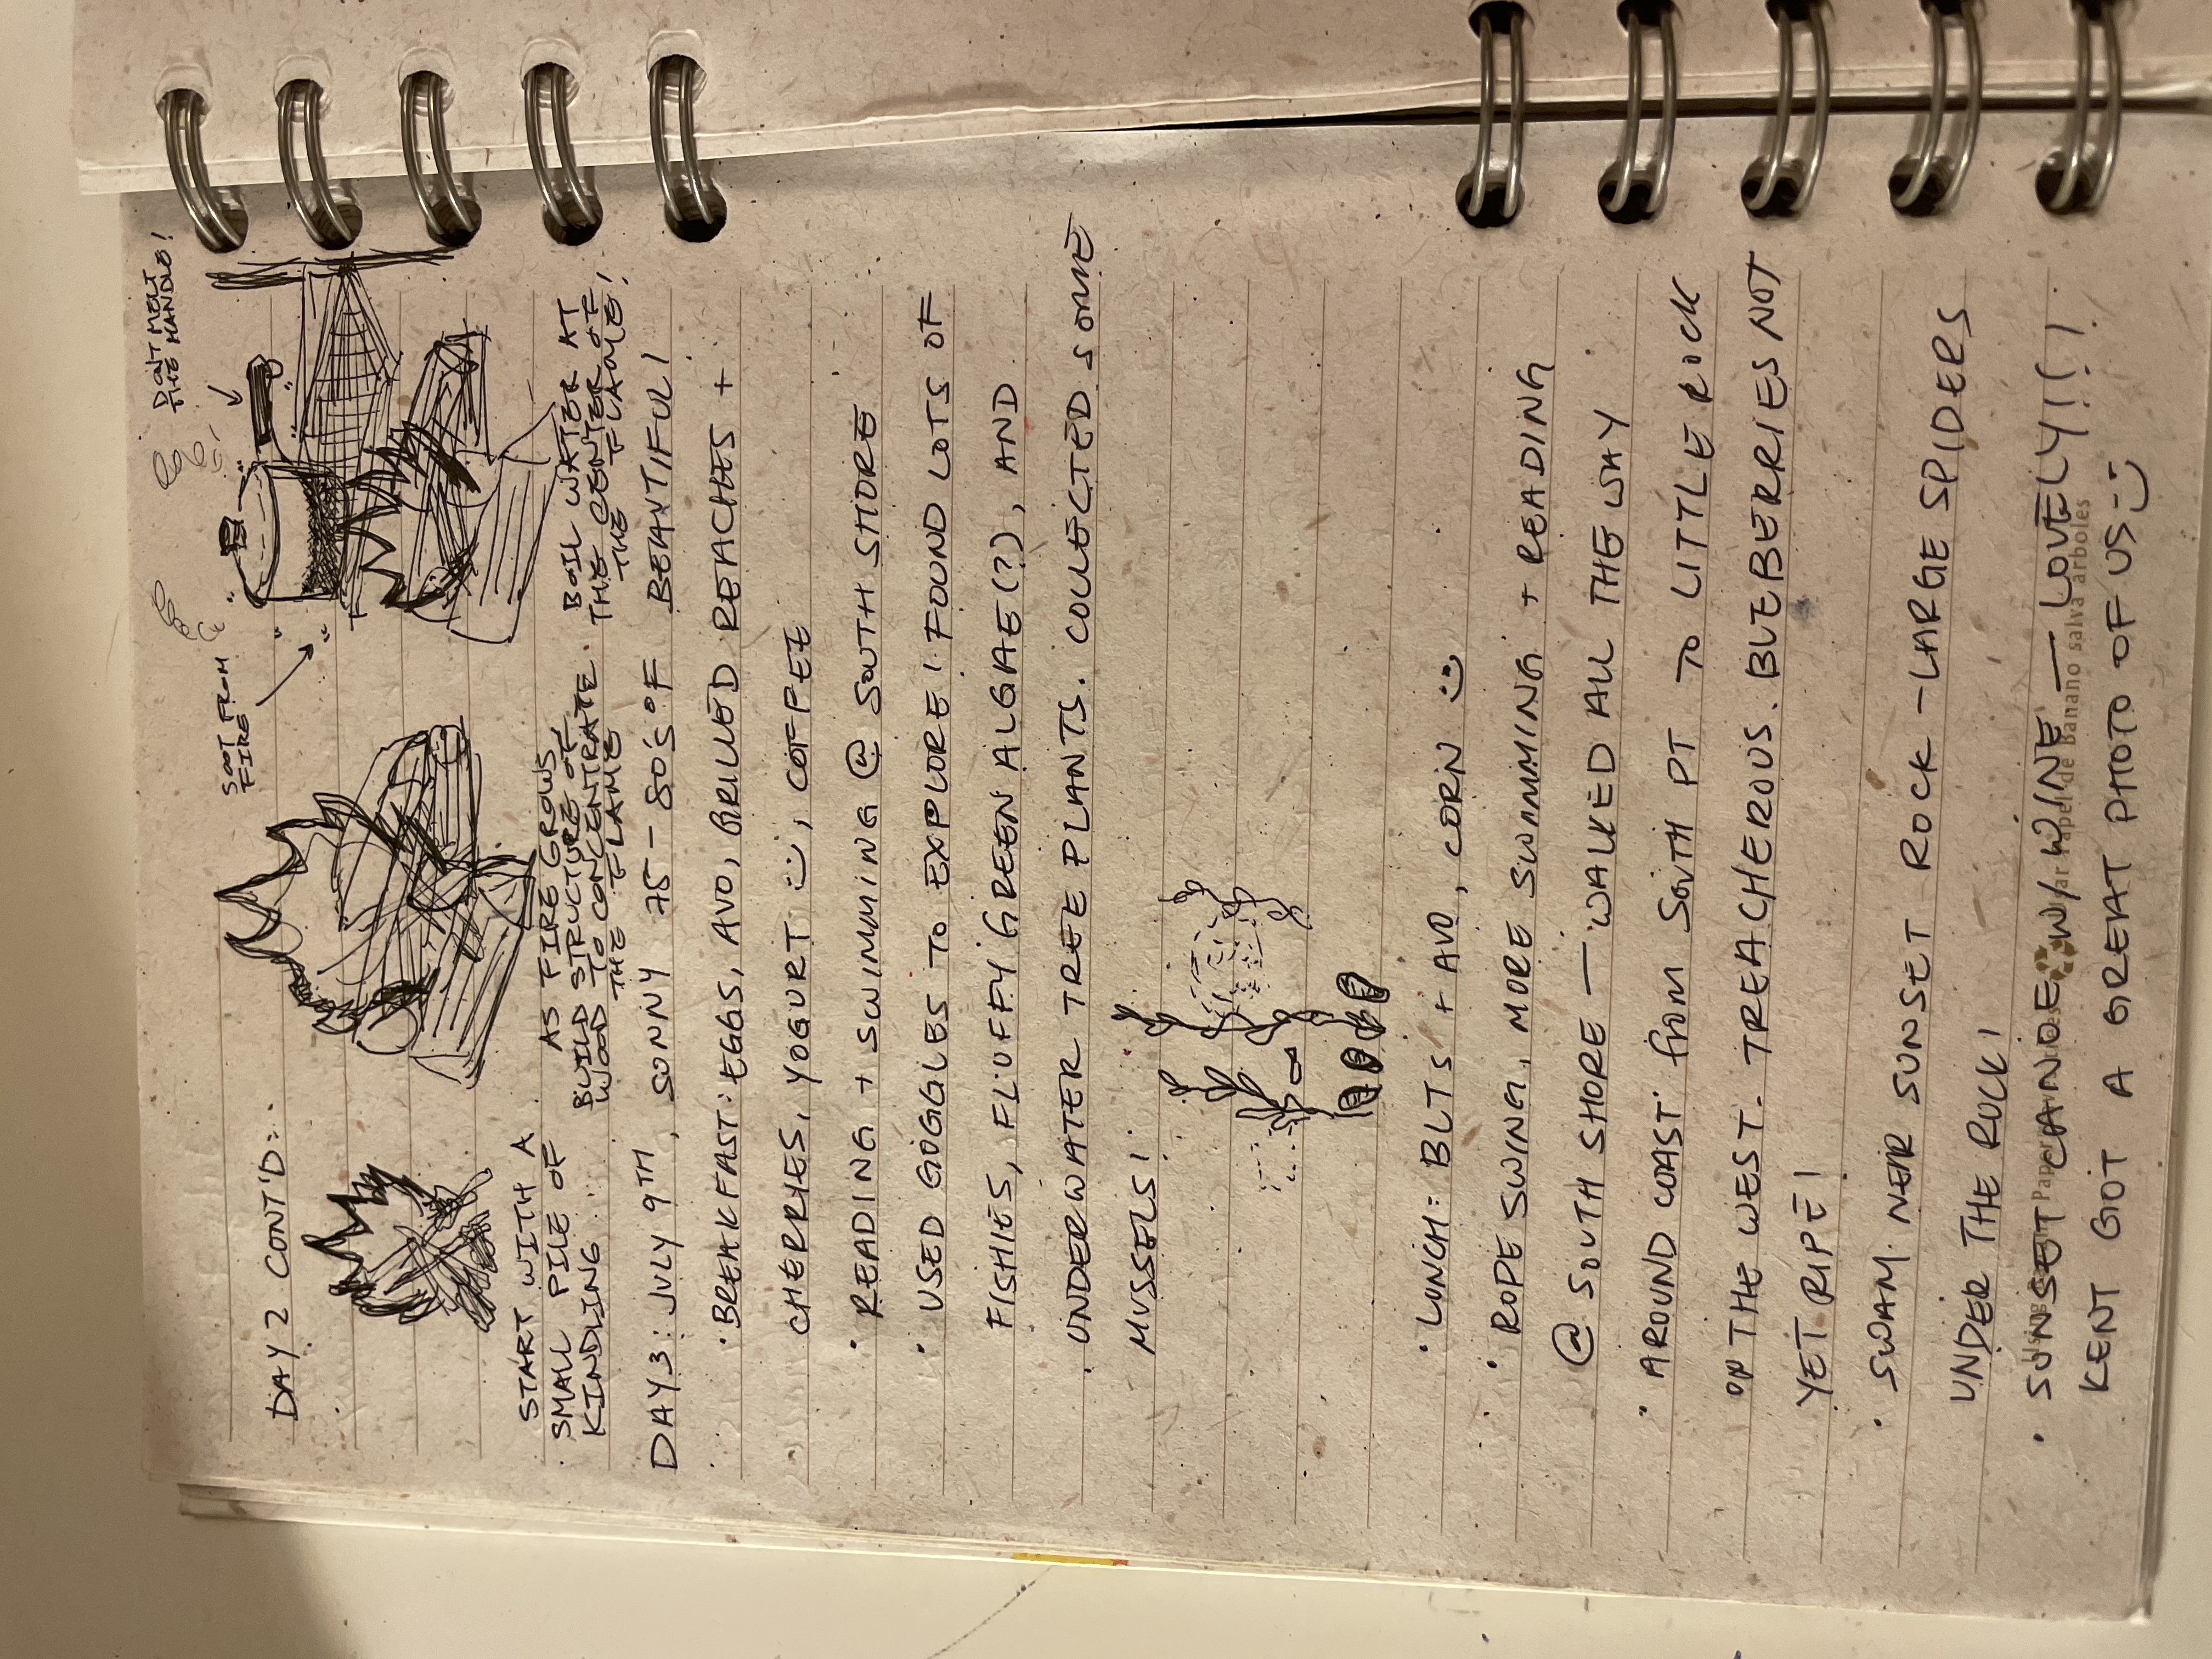 DAY 2 CONT'D:
DON'T MELT
THE HANDLE!
SOOT FROM
FIRE
START WITH A
SMALL PILE OF
KINDLING...
AS FIRE GROWS,
BUILD STRUCTURE OF
WOOD TO CONCENTRATE
THE FLAME
BOIL WATER AT
THE CENTER OF
THE FLAME!
DAY 3: JULY 9TH, SUNNY 75-80'S °F BEAUTIFUL!
• BREAKFAST: EGGS, AVO, GRILLED PEACHES +
CHERRIES, YOGURT :), COFFEE
• READING + SWIMMING @ SOUTH SHORE
• USED GOGGLES TO EXPLORE! FOUND LOTS OF
FISHIES, FLUFFY GREEN ALGAE(?), AND
UNDERWATER TREE PLANTS. COLLECTED SOME
MUSSELS!
• LUNCH: BLTS + AVO, CORN :)
• ROPE SWING, MORE SWIMMING + READING
@ SOUTH SHORE — WALKED ALL THE WAY
• AROUND COAST FROM SOUTH PT TO LITTLE ROCK
ON THE WEST. TREACHEROUS. BLUEBERRIES NOT
YET RIPE!
• SWAM NEAR SUNSET ROCK - LARGE SPIDERS
UNDER THE ROCK!
• SUNSET CANOE W/ WINE — LOVELY!!!
Papel de banano salva arboles
KENT GOT A GREAT PHOTO OF US :)